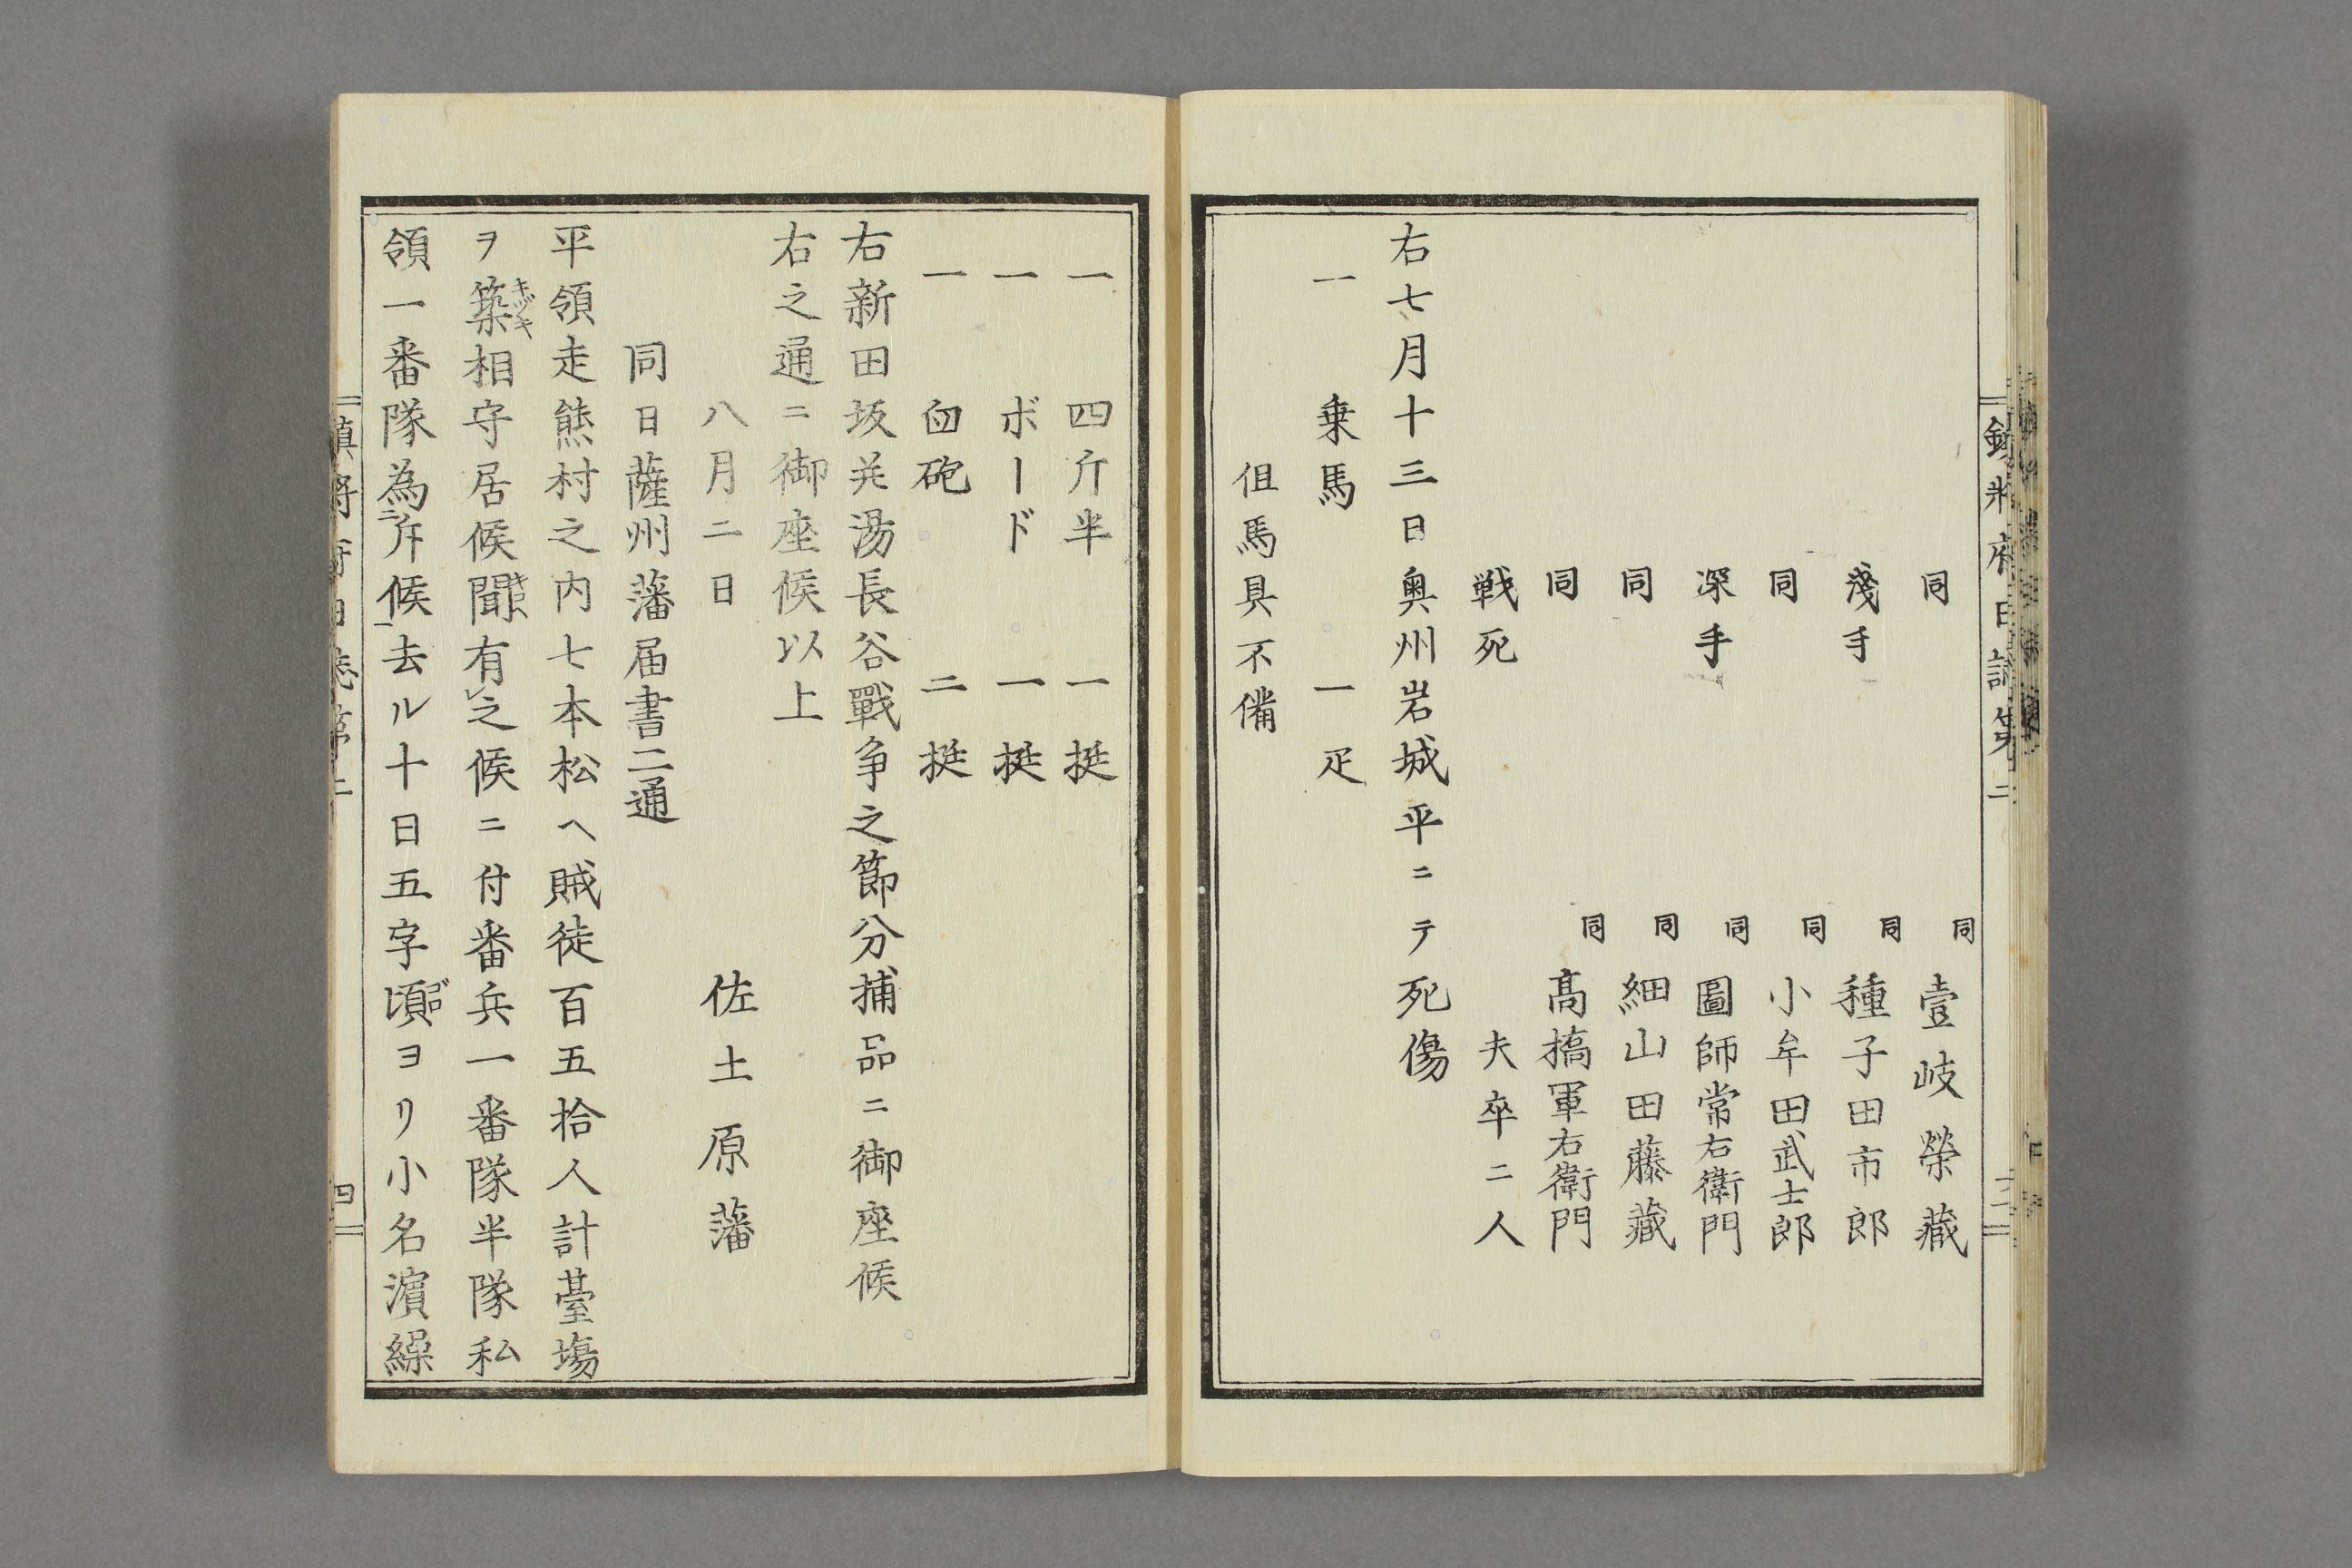 鎮将府日誌第二
同 同 壹岐榮藏
淺手 同 種子田市郎
同 同 小牟田武士郎
深手 同 圖師常右衛門
同 同 細山田藤藏
同 同 髙橋軍右衛門
戦死 夫卒二人
右七月十三日奥州岩城平ニテ死傷
一 乗馬 一疋
伹馬具不備
一 四斤半 一挺
一 ボード 一挺
一 臼砲 二挺
右新田坂并湯長谷戰争之節分捕品ニ御座候
右之通ニ御座候以上
八月二日 佐土原藩
同日薩州藩届書二通
平領走熊村之内七本松ヘ賊徒百五拾人計臺場
ヲ築キヅキ相守居候聞キコヘ有レ之候ニ付番兵一番隊半隊私
領一番隊為ニ斥候一去ル十日五字頃ゴロヨリ小名濵繰
鎮将府日誌第二 四